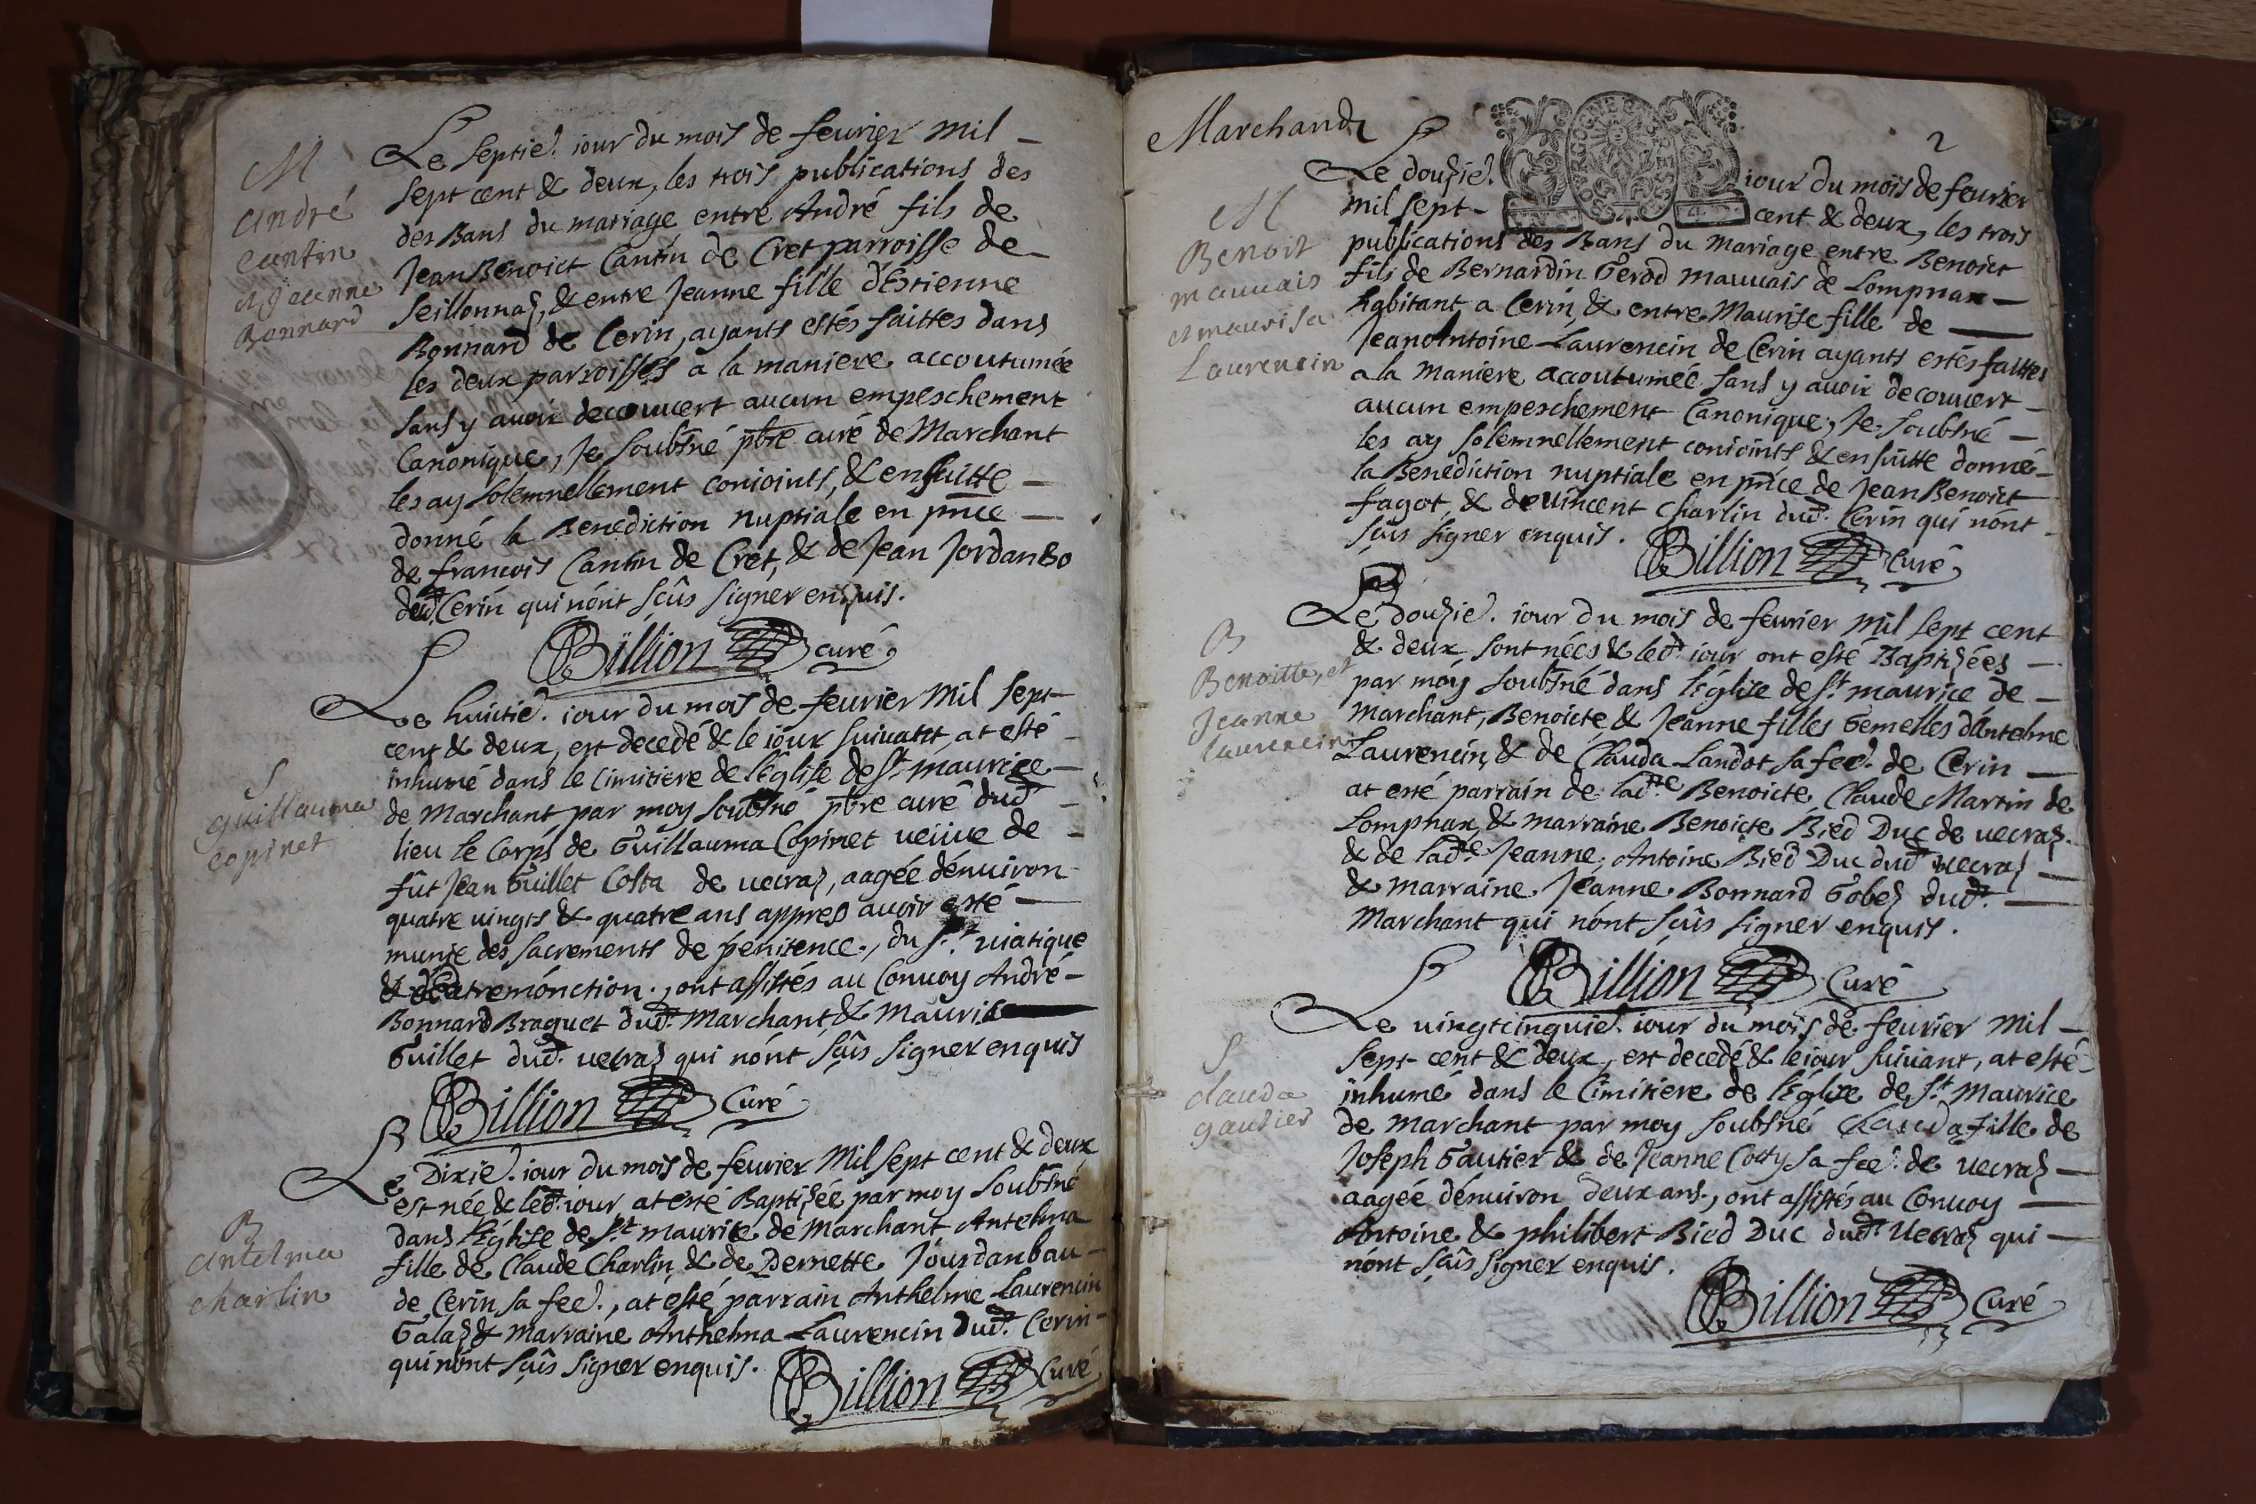 M
André
Cantin
et Jeanne
Bonnard
Le septie. iour du mois de feurier mil
sept cent & deux, les trois publications des
des Bans du mariage entre André fils de
Jean Benoict Cantin de Cret parroisse de
Seillonnaz, & entre Jeanne fille d'Estienne
Bonnard de Cerin, ayants estés faittes dans
les deux parroisses a la maniere accoutumée
sans y auoir decouuert aucun empeschement
Canonique, Je soubsné pbre curé de Marchant
les ay solemnellement conioints, & ensuitte
donné la Benediction nuptiale en pnce
de françois Cantin de Cret, & de Jean Jordan Bo
dud. Cerin qui nónt sçûs signer enquis.
Billion curé
S
Guillauma
Copinet
Le huictie. iour du mois de feurier mil sept
cent & deux, est decedé & le iour suiuant, at esté
inhumé dans le Cimitiere de l'Eglise de St. maurice
de Marchant par moy soubsné pbre curé dud.
lieu le Corps de Guillauma Copinet ueüue de
fût Jean Guillet Costa de uecraz, aagée dénuiron
quatre uingts & quatre ans appres auoir esté
munie des sacrements de penitence, du St. uiatique
& dextremónction, ont assistés au Conuoy André
Bonnard Braquet dud. Marchant & Mauris
Guillet dud. uecraz qui nónt sçûs signer enquis
Billion Curé
B
Antelma
Charlin
Le Dixie. iour du mois de feurier Mil sept cent & deux
est née & led. iour at esté Baptizée par moy soubsné
dans l'église de St. maurice de Marchant Antelma
fille de Claude Charlin & de Pernette Jourdan bau
de Cerin sa fee., at esté parrain Anthelme Laurencin
Galaz & marraine Anthelma Laurencin dud. Cerin
qui nónt sçûs signer enquis.
Billion Curé
Marchand
2
BOURGOGNE
M
Benoit
mauuais
et maurisa
Laurencin
Le douzie. iour du mois de feurier
mil sept cent & deux, les trois
publications des Bans du mariage entre Benoict
fils de Bernardin Gerod mauuais de Lompnax
habitant a Cerin, & entre Maurise fille de
Jean Antoine Laurencin de Cerin ayants estés faittes
a la maniere accoutumée sans y auoir decouuert
aucun empeschement Canonique, Je soubsné
les ay solemnellement conioints & ensuitte donné
la Benediction nuptiale en pnce de Jean Benoict
fagot, & de uincent Charlin dud. Cerin qui nónt
sçûs signer enquis.
Billion Curé
B
Benoitte, et
Jeanne
Laurencin
Le douzie. iour du mois de feurier mil sept cent
& deux sont nées & led. iour ont esté Baptizées
par moy soubsné dans l'église de St. maurice de
marchant, Benoicte, & Jeanne filles Gemelles dAntelme
Laurencin, & de Clauda Landot sa fee. de Cerin
at esté parrain de ladte Benoicte, Claude Martin de
Lompnax, & marraine Benoicte Bied Duc de uecraz.
& de ladte Jeanne, Antoine Bied Duc dud. uecraz
& marraine Jeanne Bonnard Gobez dud.
Marchant qui nónt sçûs signer enquis.
Billion Curé
S
Clauda
gautier
Le uingtcinquie. iour du mois de feurier mil
sept cent & deux, est decedé & le iour suiuant, at esté
inhumé dans le Cimitiere de l'Eglise de St. Maurice
de Marchant par moy soubsné Clauda fille de
Joseph Gautier & de Jeanne Cotty sa fee. de uecraz
aagée dénuiron deux ans, ont assistés au Conuoy
Antoine & philibert Bied Duc dud. Uecraz qui
nónt sçûs signer enquis.
Billion Curé